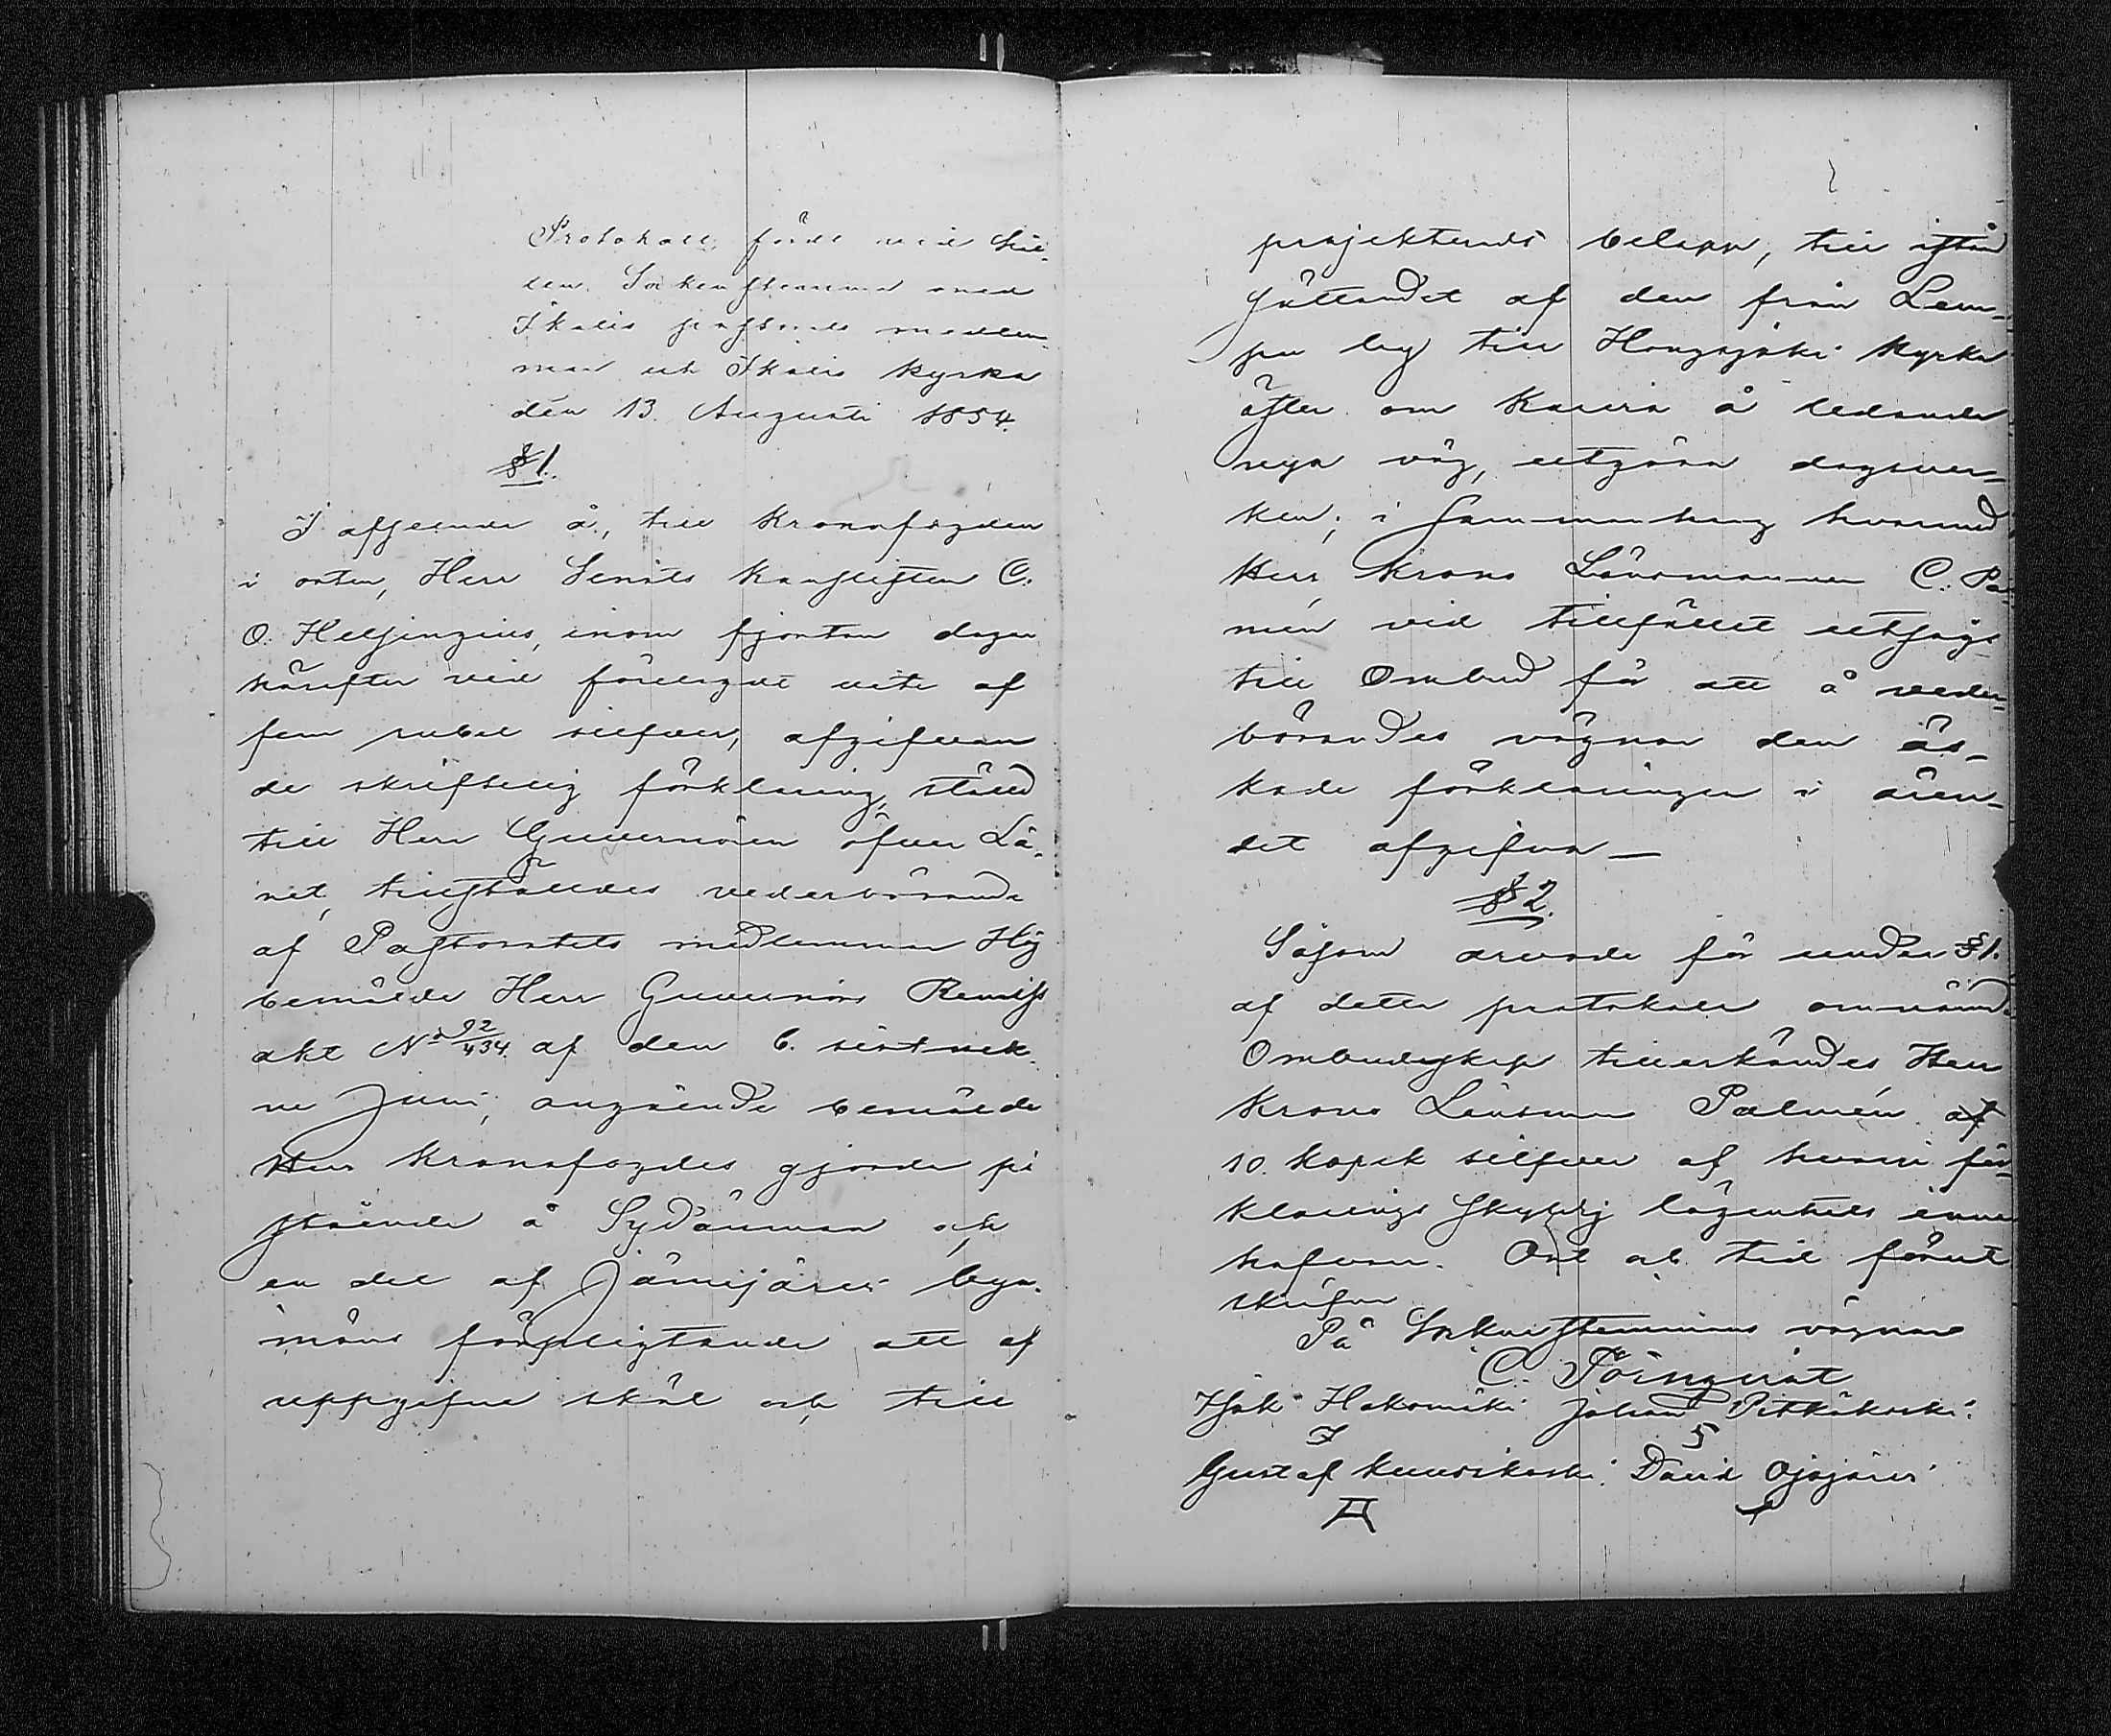 Protokoll, fördt vid hål-
len Sockenstämma med
Ikalis pastorats medlem-
mar uti Ikalis kyrka
den 13. Augusti 1854.
§ 1.
I afseende å, till Kronofogden
i orten, Herr Senats Kanslisten C.
O. Helsingius, inom fjorton dagar
härefter vid förelagdt vite af
fem rubel silfver, afgifvan-
de skriftelig förklaring, ställd
till Herr Guvernören öfver Lä-
net, tillställdes vederbörande
af Pastoratets medlemmar Hög
bemälde Herr Guvernörs Remiss
akt No 92/434. af den 6. sistvek-
ne Juni, angående bemälde
Herr Kronofogdes gjorda på
stående å Sydänmaa och
en del af Jämijärvi bya-
måns förpligtande att af
uppgifne skäl och till
projekterads belopp, till istånd
sättandet af den från Lem-
pu by till Honkajoki kyrka
öfver om Kaira å ledande
nya väg, utgöra dagsver-
ken; i sammanhang hvarmed
Herr Krono Länsmannen C. Pal-
mén vid tillfället utsågs
till Ombud för att å veder-
börandes vägnar den äs-
kade förklaringen i ären-
det afgifva —
§ 2.
Såsom arvode för under § 1.
af detta protokoll omnämnd
Ombudskap tillerkändes Herr
Krono Länsman Palmén af
10. kopek silfver af hvarje för-
klarings skyldig lägenhets inne
hafvare. Ort och tid förut
skrifne
På Sockenstämmans vägnar
C. Törnqvist
Isak Hakomäki Johan Pitkäkoski
Gustaf Kuusikoski. David Ojajärvi